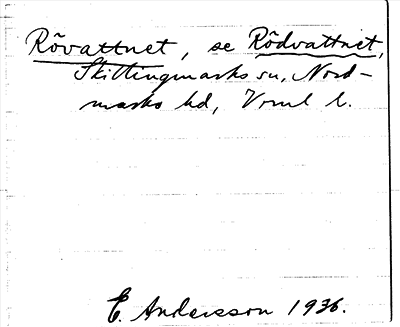 Rövattnet, se Rödvattnet,
Skillingmarks sn, Nord-
marks hd, Vrml l.
E. Andersson 1936.